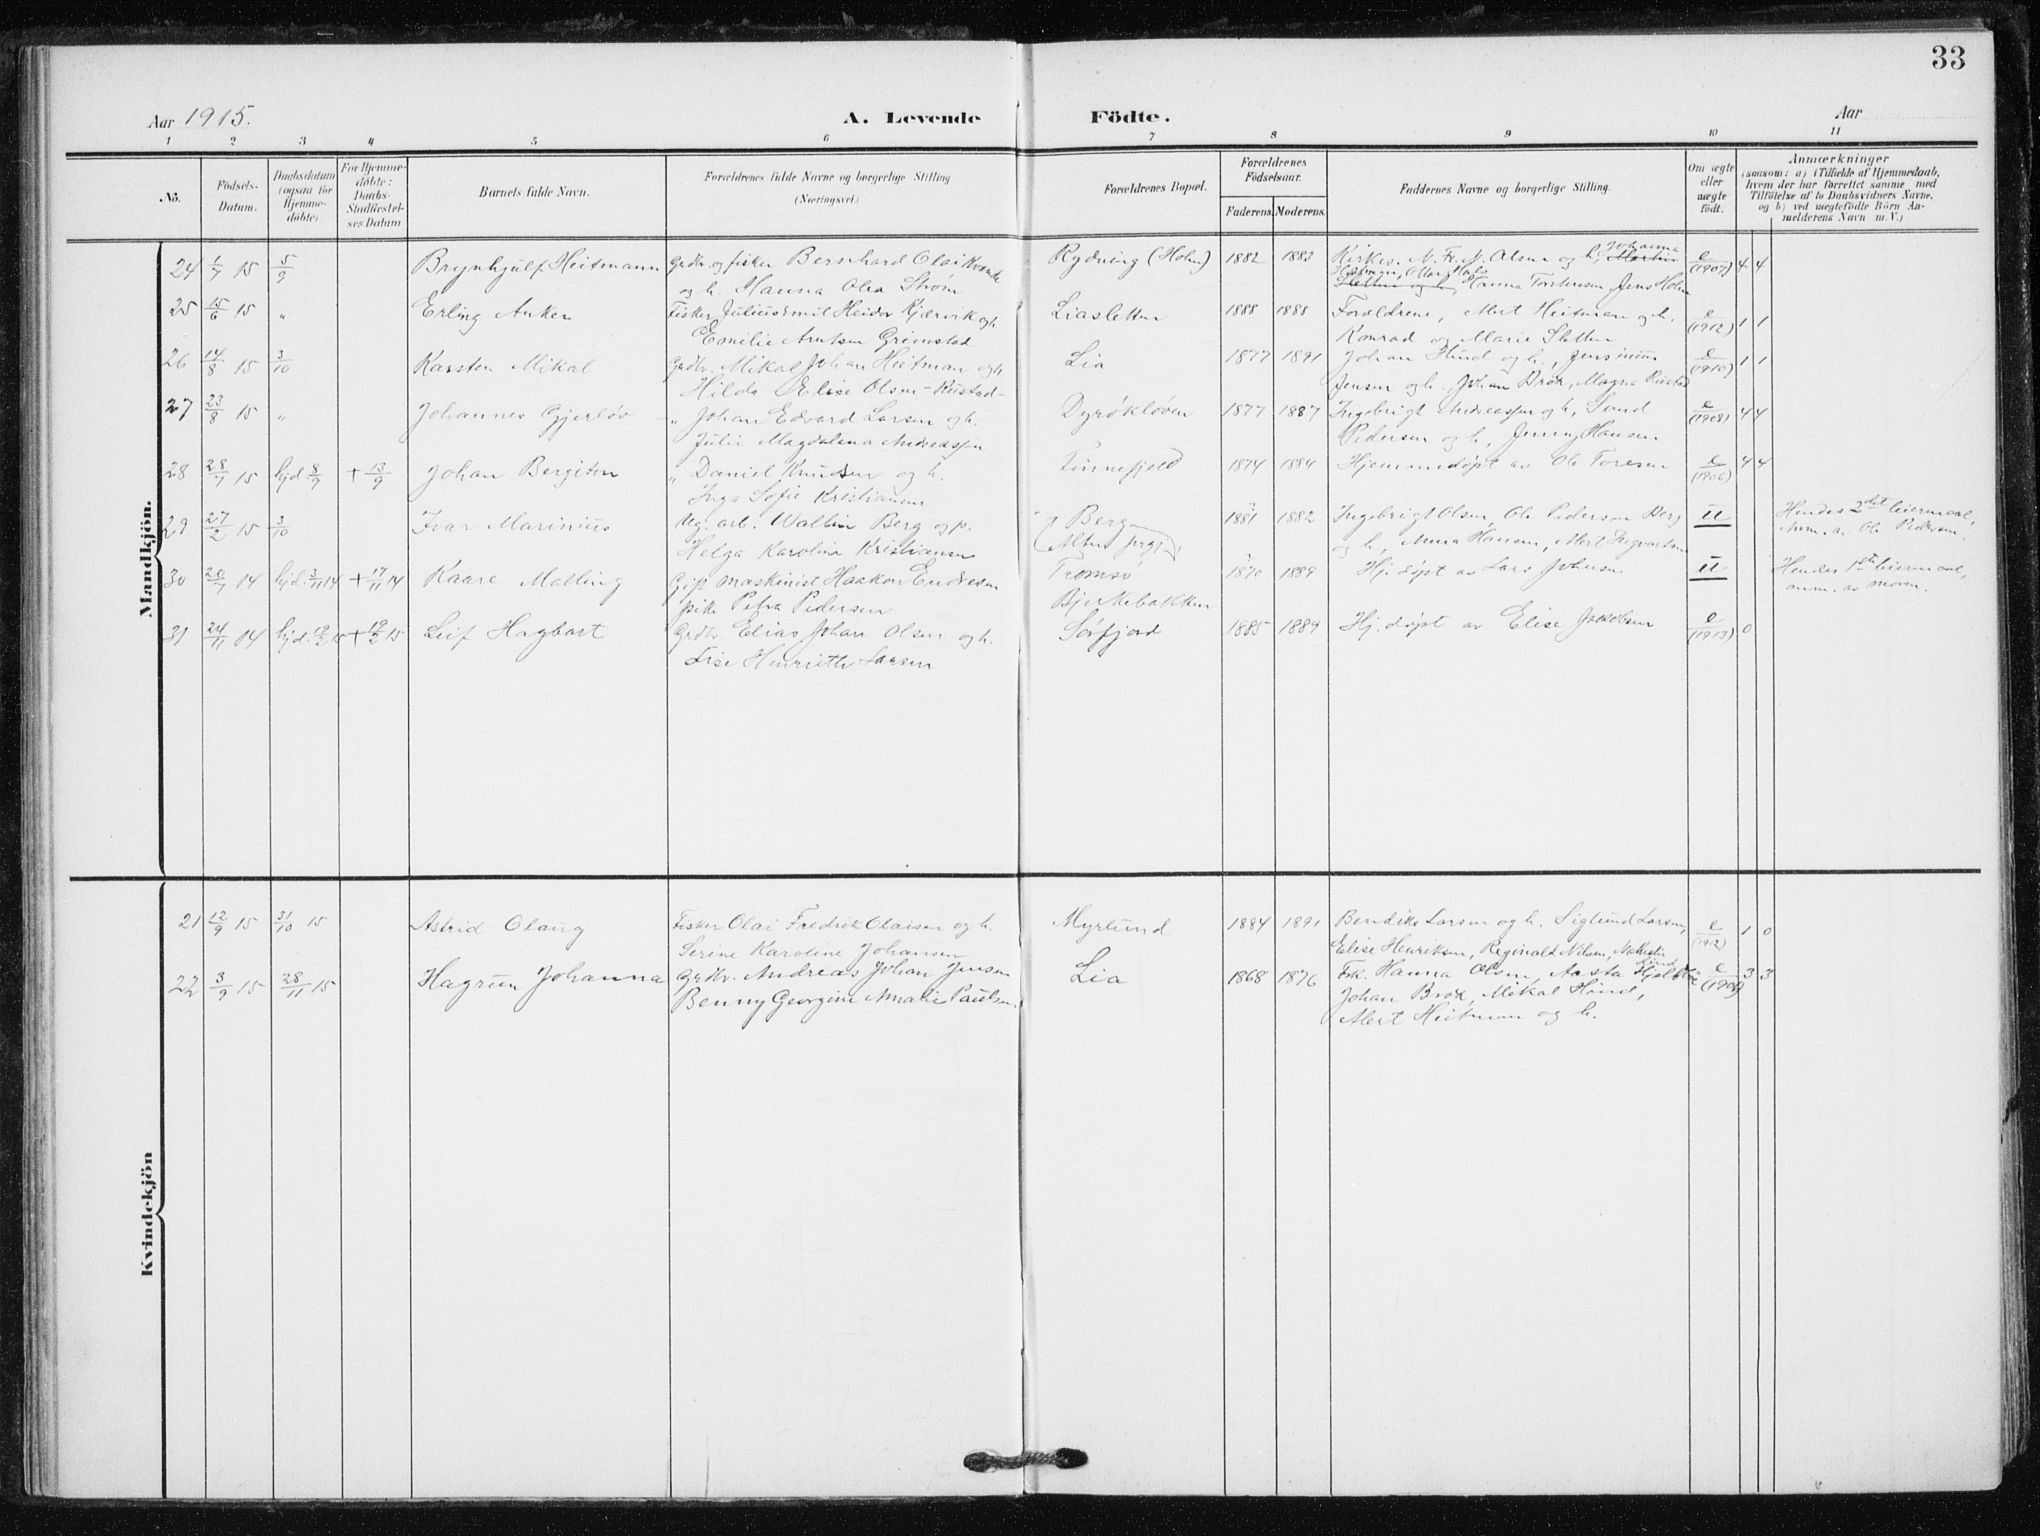 33
Aar 1915.
A. Levende Födte.
Aar
1 2 3 4 5 6 7 8 9 10 11
No.
Födsels-Datum.
Daabsdatum (ogsaa for Hjemme-døbte)
For Hjemme-døbte: Daabs-Stadfæstel-ses Datum
Barnets fulde Navn.
Forældrenes fulde Navne og borgerlige Stilling
(Næringsvei.)
Forældrenes Bopæl.
Forældrenes Födselsaar.
Faderens. Moderens.
Faddernes Navne og borgerlige Stilling.
Om ægte eller uægte födt.
Anmærkninger
(saasom: a) i Tilfælde af Hjemmedaab,
hvem der har forrettet samme med
Tilföielse af to Daabsvidners Navne,
og b) ved uægtefödte Börn An-
melderens Navn m. V.)
Mandkjön.
24 1/7 15 5/9 Brynhjulf Heitmann Grdbr. og fisker Bernhard Olai Kvande Rydning (Holm) 1882 1883 Kirkes. N. Fr. N. Olsen og h., Johanna e 4 4
og h. Hanna Olea Strøm Heitman, Hanna Torstensen, Jens Holm (1907)
25 15/6 15 „ Erling Anker Fisker Julius Emil Heider Kjærvik og h. Liasletten 1888 1888 Forældrene, Mert Heitman og h. e 1 1
Emilie Arntsen Grimstad Konrad og Marie Sletten (1912)
26 14/8 15 3/10 Karsten Mikal Grdbr. Mikal Johan Heitman og h. Lia 1877 1891 Johan Hind og h., Jensinius e 1 1
Hilda Elise Olsen-Rustad Jensen og h., Johan Brox, Magna Rustad (1910)
27 23/8 15 „ Johannes Gjerløv „ Johan Edvard Larsen og h. Dyrøkløven 1877 1887 Ingebrigt Andreassen og h., e 4 4
Julie Magdalena Andreassen Pedersen og h., Jenny Hansen (1908)
28 28/7 15 hjd. 8/9 + 13/9 Johan Bergiton „ Daniel Knudsen og h. Finnefjeld 1874 1884 Hjemmedøpt av Ole Toresen e 4 4
Inga Sofie Kristiansen (1906)
29 27/2 15 3/10 Ivar Marinius Ug. arb. Wallin Berg og p. Berg 1881 1882 Ingebrigt Olsen, Ole Pederson Berg u Hendes 2det leiermaal,
Helga Karolina Kristiansen og h., Anna Hansen, Mert Ingvartsen anm. av Ole Pedersen.
30 20/7 14 hjd. 3/11 14 + 17/11 14 Kaare Malling Gift maskinist Haakon Endresen Tromsø 1870 1889 Hj. døpt av Lars Johnsen u Hendes 1ste leiermaal,
pike Petra Pedersen Bjerkebakken anm. av moren.
31 24/11 14 hjd. 19/2 15 + 19/2 15 Leif Hagbart Grdbr. Elias Johan Olsen og h. Sørfjord 1885 1889 Hj. døpt av Elise Jakobsen e 0
Lise Henriette Larsen (1913)
Kvindekjön
21 12/9 15 31/10 15 Astrid Olaug Fisker Olai Fredrik Olaisen og h. Myrlund 1884 1891 Bendiks Larsen og h. Siglund Larsen, e 1 0
Serine Karoline Johansen Elise Henriksen, Reginald Nilsen, Mathilde Hind (1912)
22 3/9 15 28/11 15 Hagrun Johanna Grdbr. Andreas Johan Jensen Lia 1868 1876 Frk. Hanna Olsen, Aasta e 3 3
Benny Georgine Amalie Paulsen Johan Brox, Mikal Hind,
Mert Heitman og h.